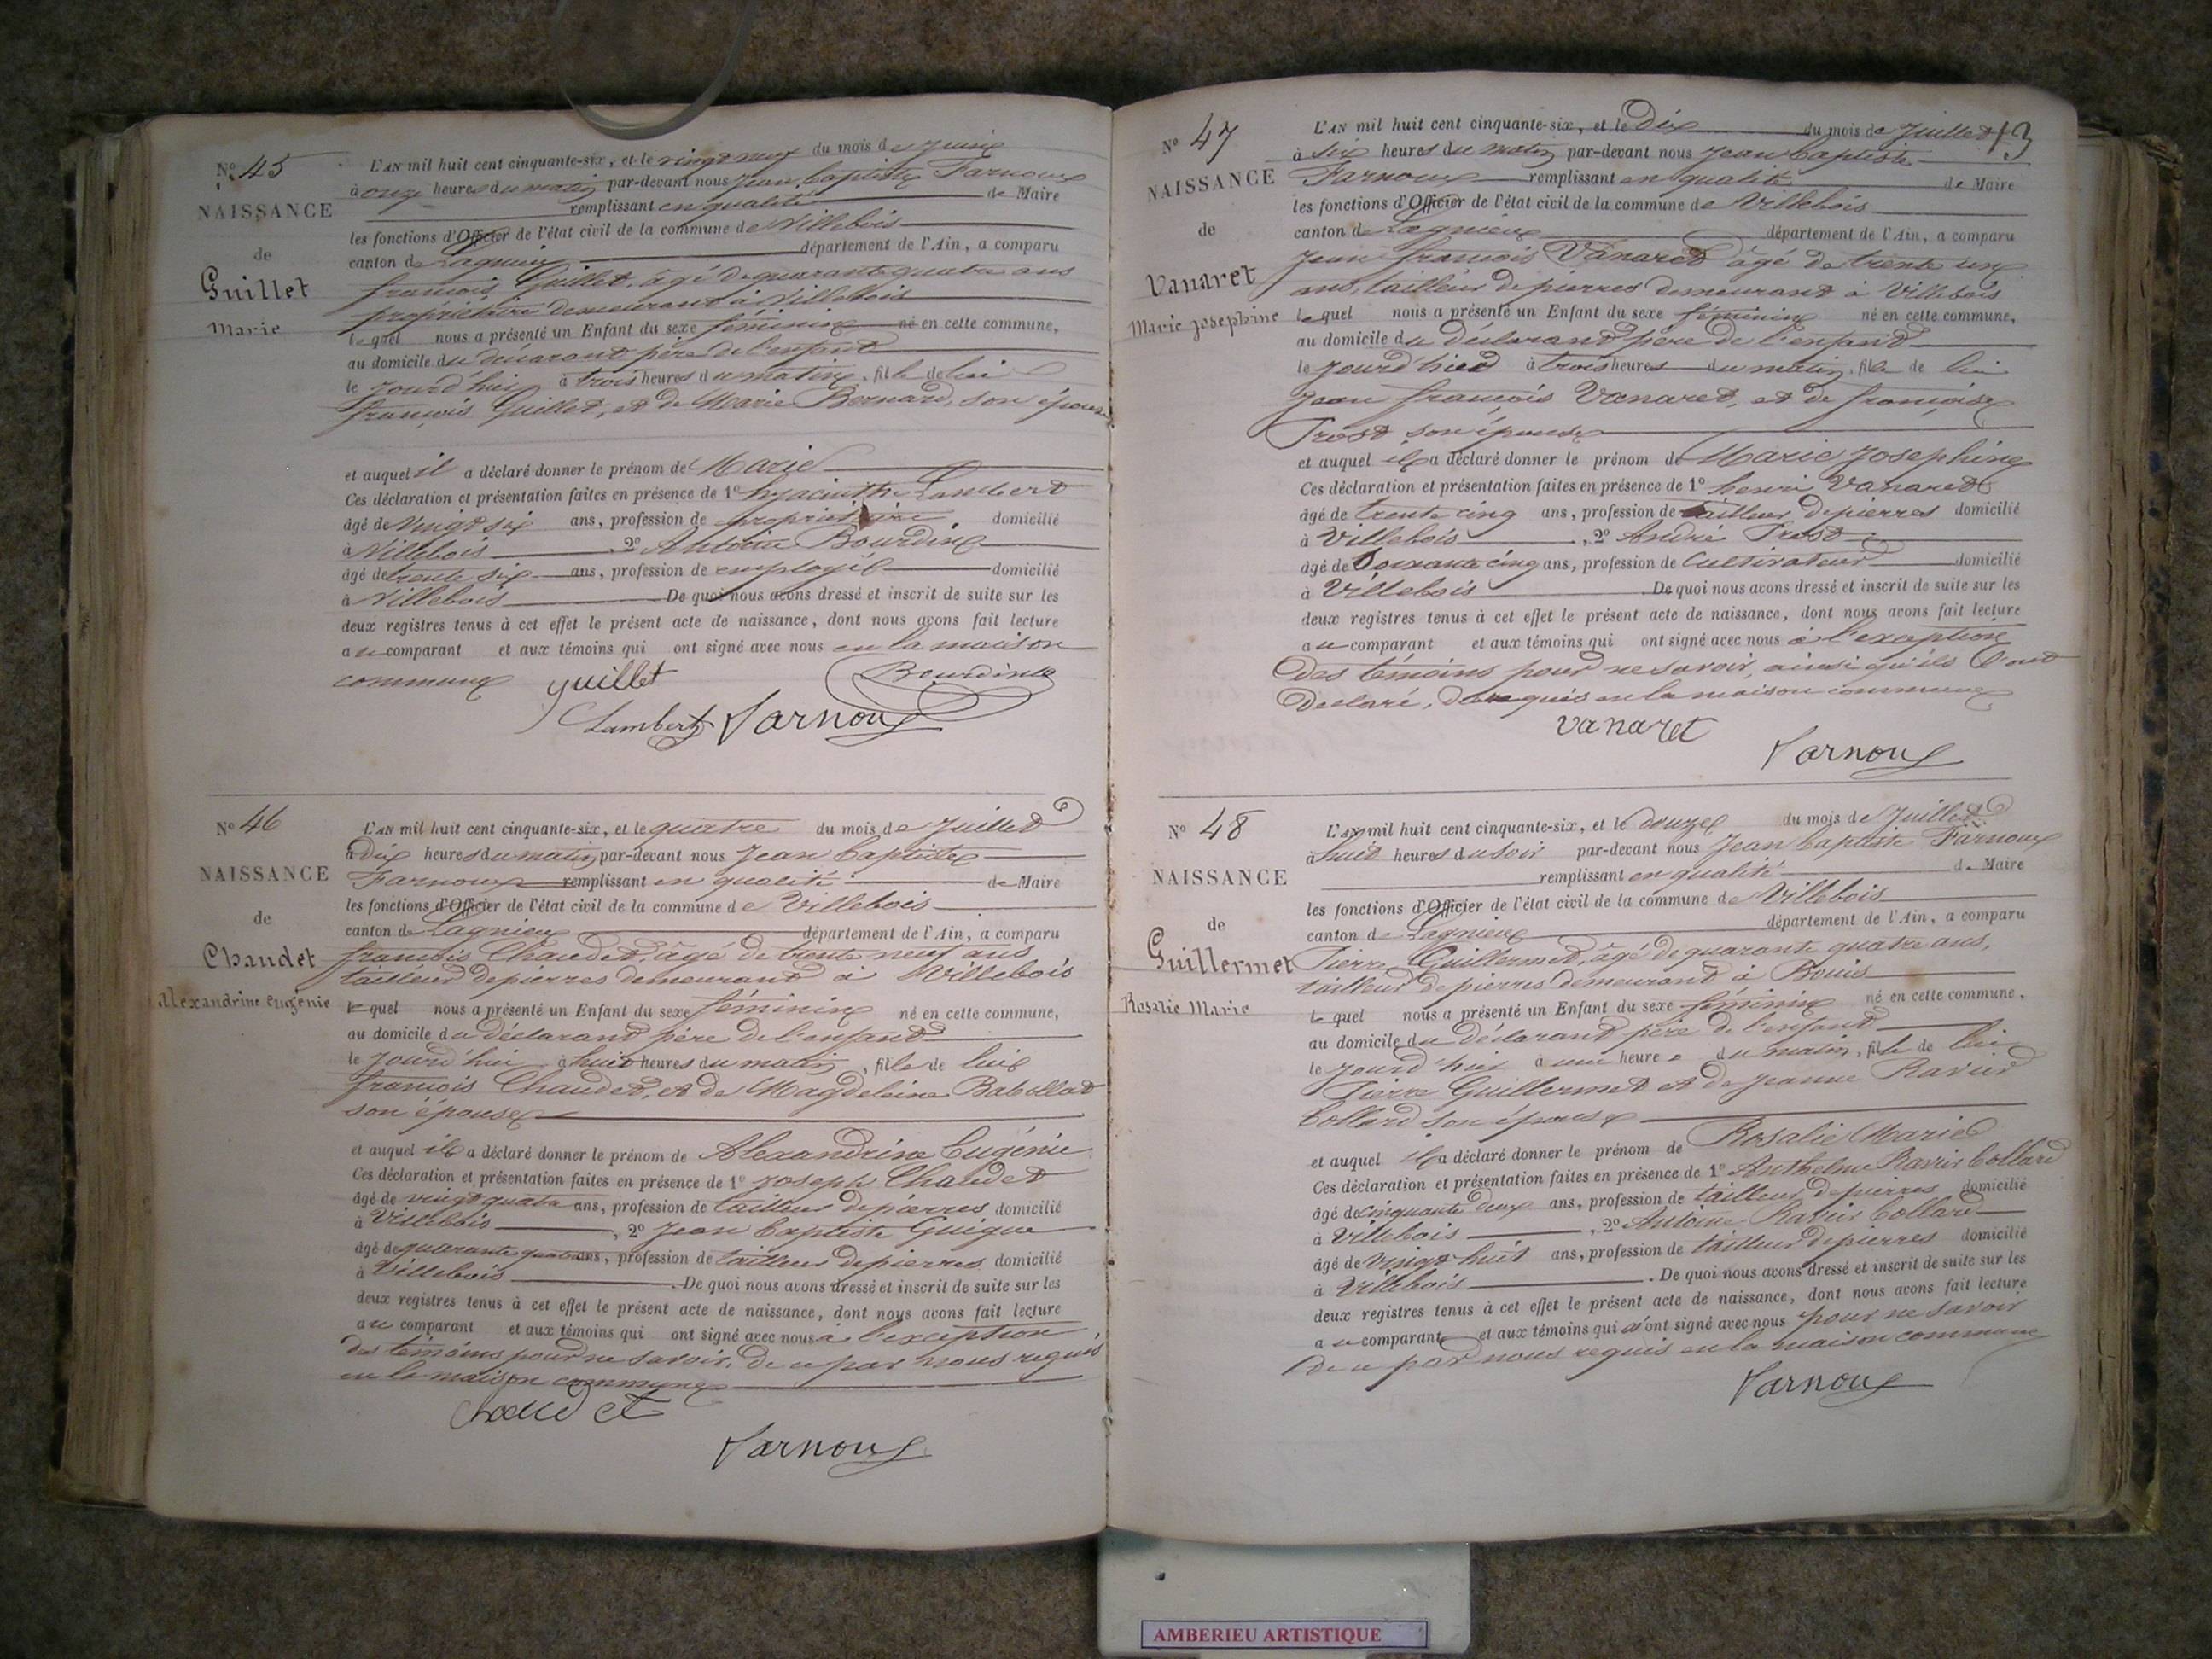 Nº 45
NAISSANCE
de
Guillet
Marie
L'AN mil huit cent cinquante-six, et le vingt neuf du mois de Juin
à onze heures du matin par-devant nous Jean baptiste Farnoux
remplissant en qualité de Maire
les fonctions d'Officier de l'état civil de la commune de Villebois
canton de Lagnieu département de l'Ain, a comparu
françois Guillet, âgé de quarante quatre ans
propriétaire demeurant à Villebois
lequel nous a présenté un Enfant du sexe féminin né en cette commune,
au domicile du déclarant père de l'enfant
le jourd'hui à trois heures du matin, fille de lui
françois Guillet, et de Marie Bernard, son épouse
et auquel il a déclaré donner le prénom de Marie
Ces déclaration et présentation faites en présence de 1º hyacinthe Lambert
âgé de vingt six ans, profession de propriétaire domicilié
à Villebois, 2º Antoine Bourdin
âgé de trente six ans, profession de employé domicilié
à Villebois De quoi nous avons dressé et inscrit de suite sur les
deux registres tenus à cet effet le présent acte de naissance, dont nous avons fait lecture
au comparant et aux témoins qui ont signé avec nous en la maison
commune
guillet
Bourdin
Lambert Farnoux
Nº 46
NAISSANCE
de
Chaudet
Alexandrine Eugénie
L'AN mil huit cent cinquante-six, et le quatre du mois de Juillet
à dix heures du matin par-devant nous Jean baptiste
Farnoux remplissant en qualité de Maire
les fonctions d'Officier de l'état civil de la commune de Villebois
canton de Lagnieu département de l'Ain, a comparu
françois Chaudet, âgé de trente neuf ans
tailleur de pierres demeurant à Villebois
lequel nous a présenté un Enfant du sexe féminin né en cette commune,
au domicile du déclarant père de l'enfant
le jourd'hui à huit heures du matin, fille de lui
françois Chaudet, et de Magdeleine Babollat
son épouse
et auquel il a déclaré donner le prénom de Alexandrine Eugénie
Ces déclaration et présentation faites en présence de 1º Joseph Chaudet
âgé de vingt quatre ans, profession de tailleur de pierres domicilié
à Villebois, 2º Jean baptiste Guigue
âgé de quarante quatre ans, profession de tailleur de pierres domicilié
à Villebois. De quoi nous avons dressé et inscrit de suite sur les
deux registres tenus à cet effet le présent acte de naissance, dont nous avons fait lecture
au comparant et aux témoins qui ont signé avec nous a l'exception
des témoins pour ne savoir, de ce par nous requis
en la maison commune
chaudet
Farnoux
13
Nº 47
NAISSANCE
de
Vanaret
Marie Josephine
L'AN mil huit cent cinquante-six, et le dix du mois de Juillet
à six heures du matin par-devant nous Jean baptiste
Farnoux remplissant en qualité de Maire
les fonctions d'Officier de l'état civil de la commune de Villebois
canton de Lagnieu département de l'Ain, a comparu
Jean françois Vanaret âgé de trente un
ans, tailleur de pierres demeurant à Villebois
lequel nous a présenté un Enfant du sexe féminin né en cette commune,
au domicile du déclarant père de l'enfant
le jourd'hier à trois heures du matin, fille de lui
Jean françois Vanaret, et de françoise
Trost son épouse
et auquel il a déclaré donner le prénom de Marie Josephine
Ces déclaration et présentation faites en présence de 1º henri Vanaret
âgé de trente cinq ans, profession de tailleur de pierres domicilié
à Villebois, 2º André Trost
âgé de soixante cinq ans, profession de Cultivateur domicilié
à Villebois. De quoi nous avons dressé et inscrit de suite sur les
deux registres tenus à cet effet le présent acte de naissance, dont nous avons fait lecture
au comparant et aux témoins qui ont signé avec nous à l'exception
des témoins pour ne savoir, ainsi qu'ils l'ont
déclaré, de ce requis en la maison commune
vanaret
Farnoux
Nº 48
NAISSANCE
de
Guillermet
Rosalie Marie
L'AN mil huit cent cinquante-six, et le douze du mois de Juillet
à huit heures du soir par-devant nous Jean baptiste Farnoux
remplissant en qualité de Maire
les fonctions d'Officier de l'état civil de la commune de Villebois
canton de Lagnieu département de l'Ain, a comparu
Pierre Guillermet, âgé de quarante quatre ans,
tailleur de pierres demeurant à Bouis
lequel nous a présenté un Enfant du sexe féminin né en cette commune,
au domicile du déclarant père de l'enfant
le jourd'hui à une heure du matin, fille de lui
Pierre Guillermet et de Jeanne Ravier
Collard son épouse
et auquel il a déclaré donner le prénom de Rosalie Marie
Ces déclaration et présentation faites en présence de 1º Anthelme Ravier Collard
âgé de cinquante deux ans, profession de tailleur de pierres domicilié
à Villebois, 2º Antoine Ravier Collard
âgé de vingt huit ans, profession de tailleur de pierres domicilié
à Villebois. De quoi nous avons dressé et inscrit de suite sur les
deux registres tenus à cet effet le présent acte de naissance, dont nous avons fait lecture
au comparant et aux témoins qui n'ont signé avec nous pour ne savoir
de ce par nous requis en la maison commune
Farnoux
AMBERIEU ARTISTIQUE